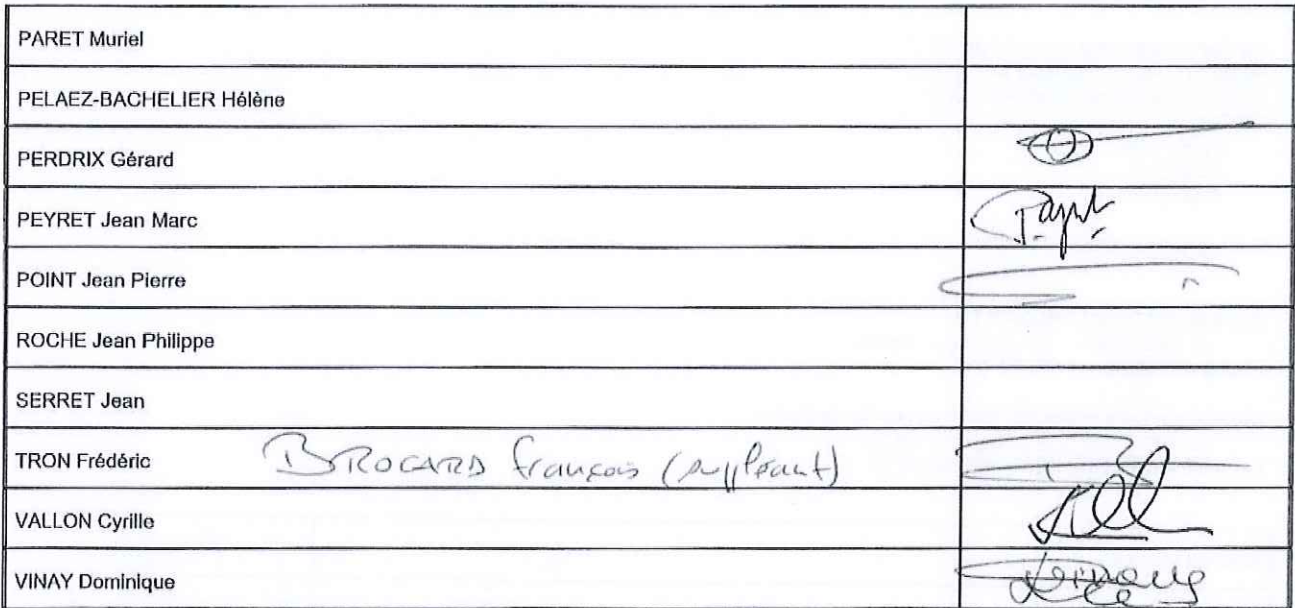 PARET Muriel
PELAEZ-BACHELIER Hélène
PERDRIX Gérard
PEYRET Jean Marc
POINT Jean Pierre
ROCHE Jean Philippe
SERRET Jean
TRON Frédéric BROCARD François (suppléant)
VALLON Cyrille
VINAY Dominique